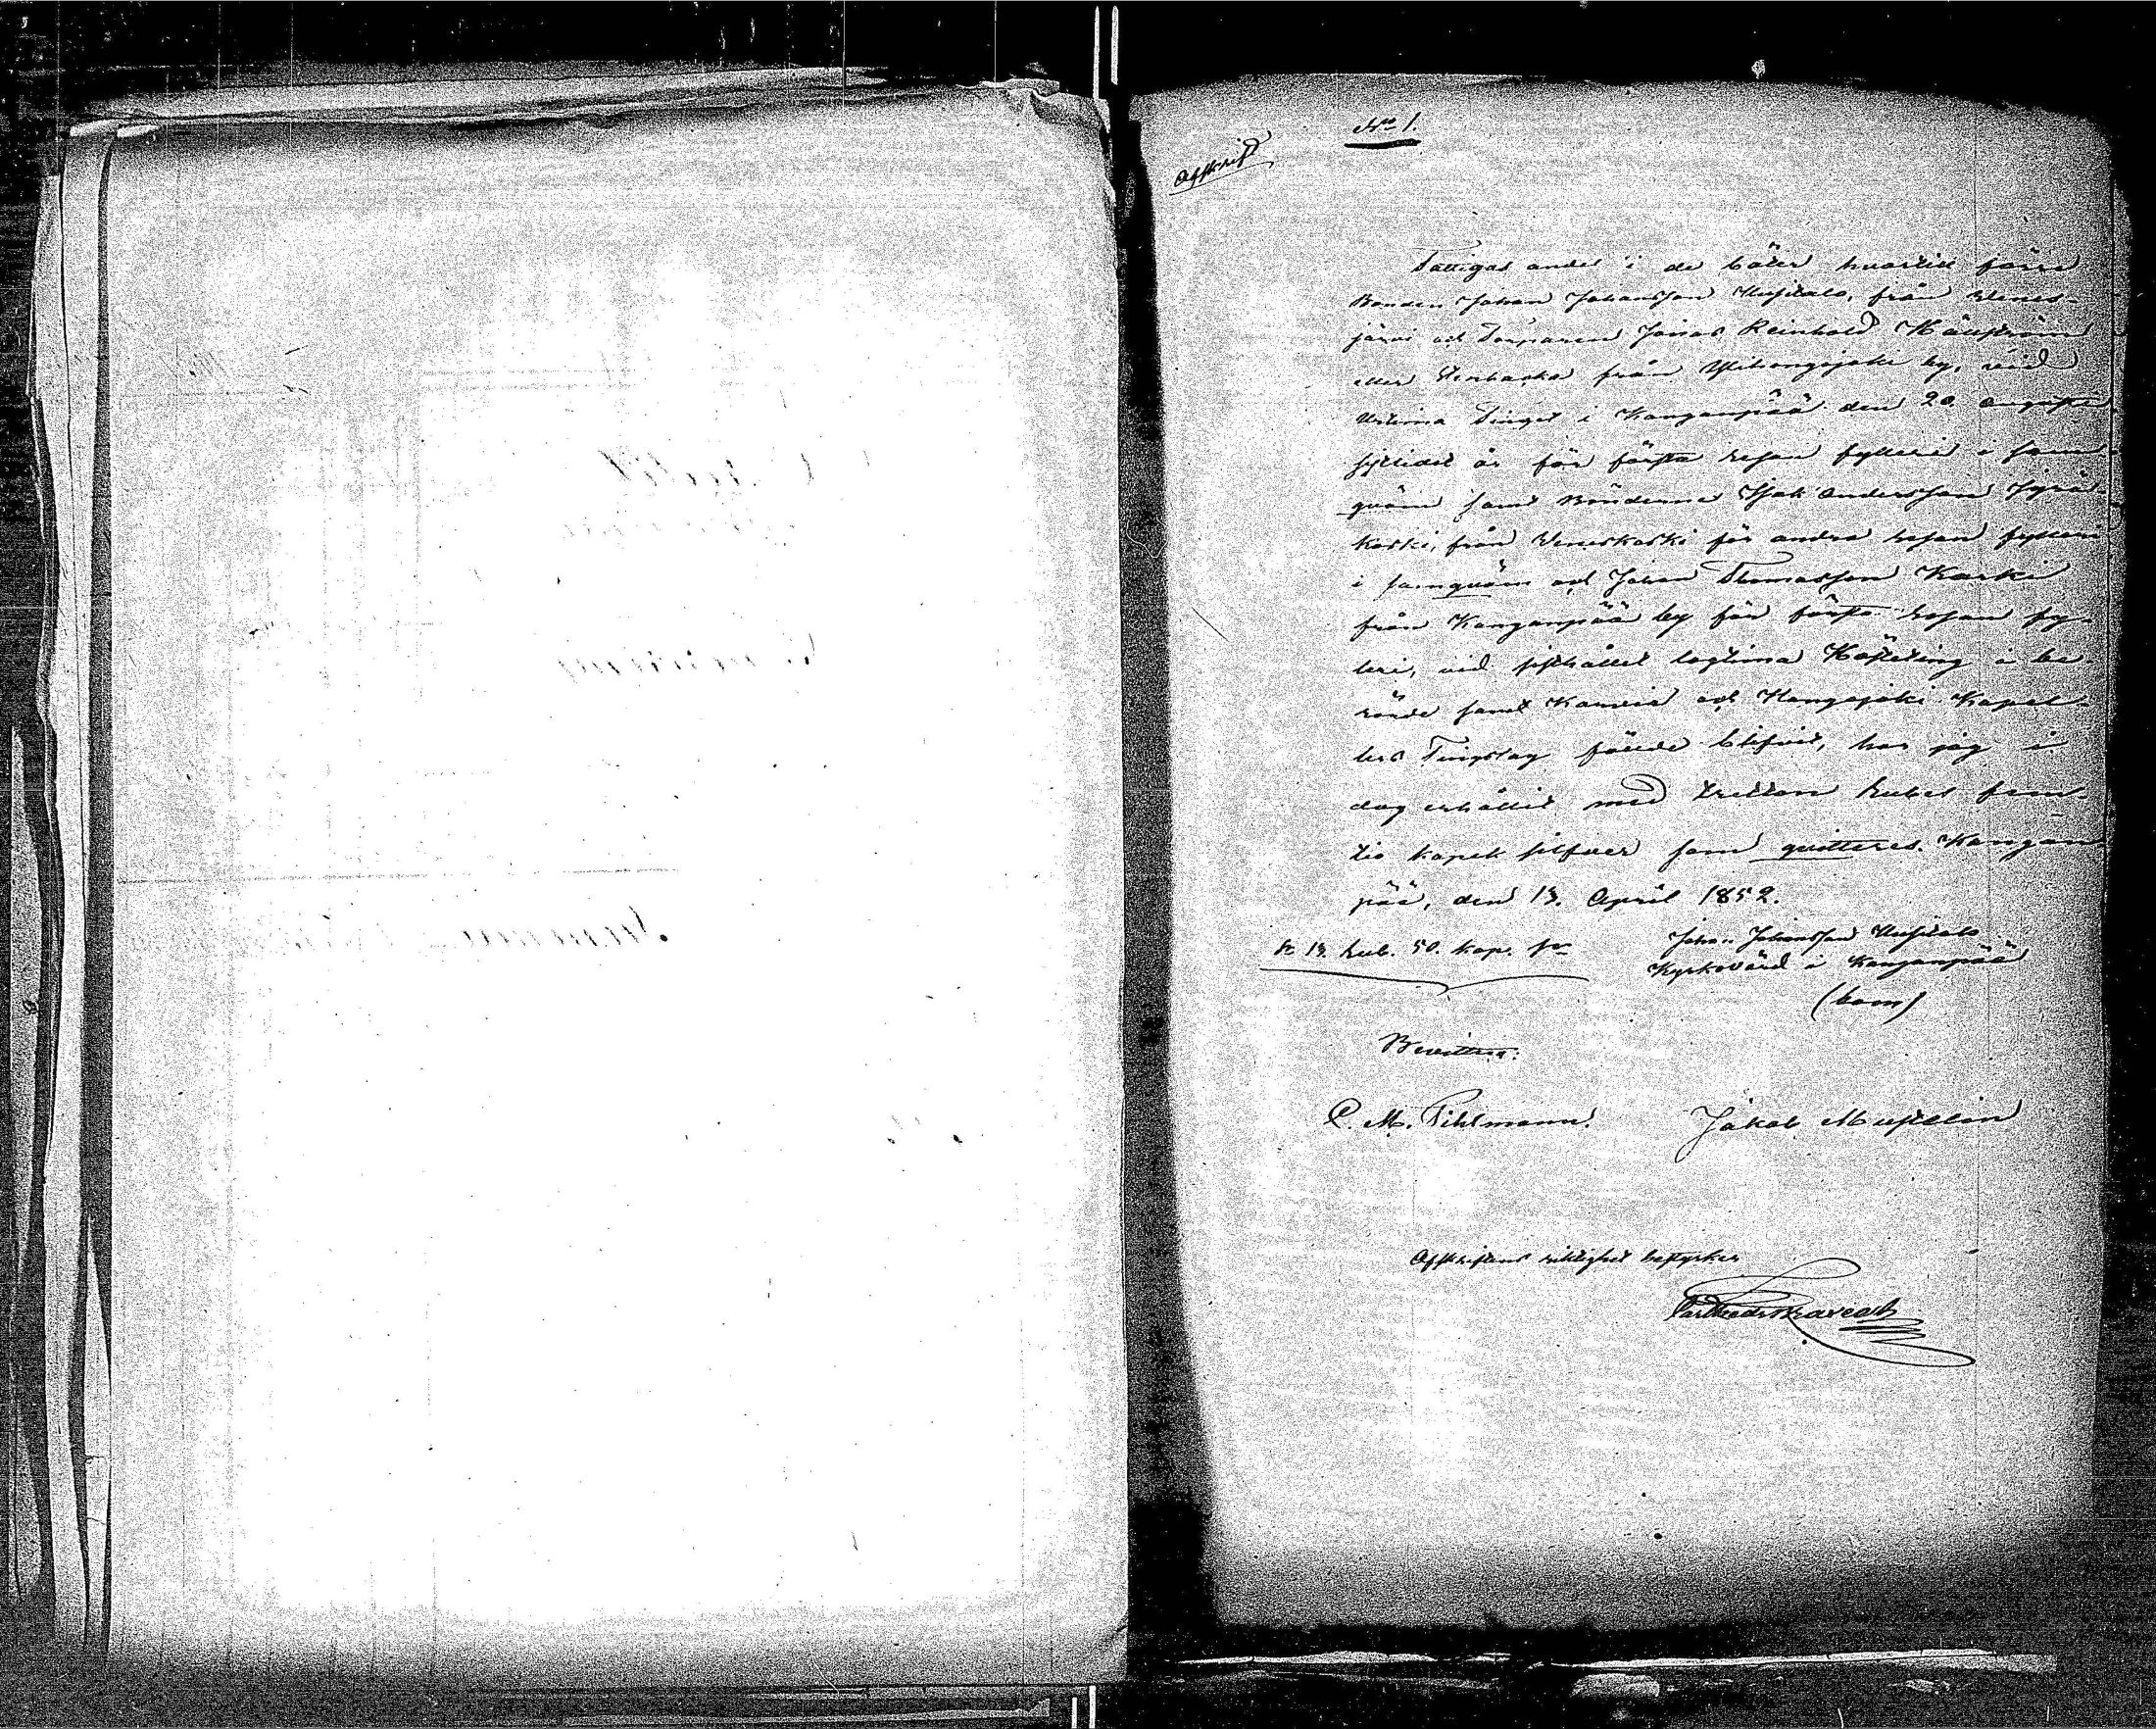 No 1.
Afskrift
Fattigas andel i de böter hvartill förre
Bonden Johan Johansson Uusitalo, från Venes-
järvi och Torparen Jonas Reinhold Hällström
eller från Vihongajoki by, vid
Urtima Tinget i Kangaspää den 20. Augusti
sistlidet år för första resan fylleri i sam-
qväm samt Bönderne Isak Andersson Jyrä-
koski, från Veneskoski för andra resan fylleri
i samqväm och Johan Thomasson Karki
från Kanganpää by för första resan fy-
leri, vid sisthållet lagtima Hösteting i be-
rörde samt Karvia och Hongojoki Kapel-
lers Tingslag fällde blifvit, har jag i
dag erhållit med tretton rubel fem-
tio kopek silfver som qvitteras. Kangan
pää, den 13. April 1852.
Johan Johansson Uusitalo
Kyrkovärd i Kanganpää
13. rub. 50. kop. sr
(bom)
Bevittna:
C. M. Pihlmann. Jakob Mustelin
Afskriftens riktighet bestyrker